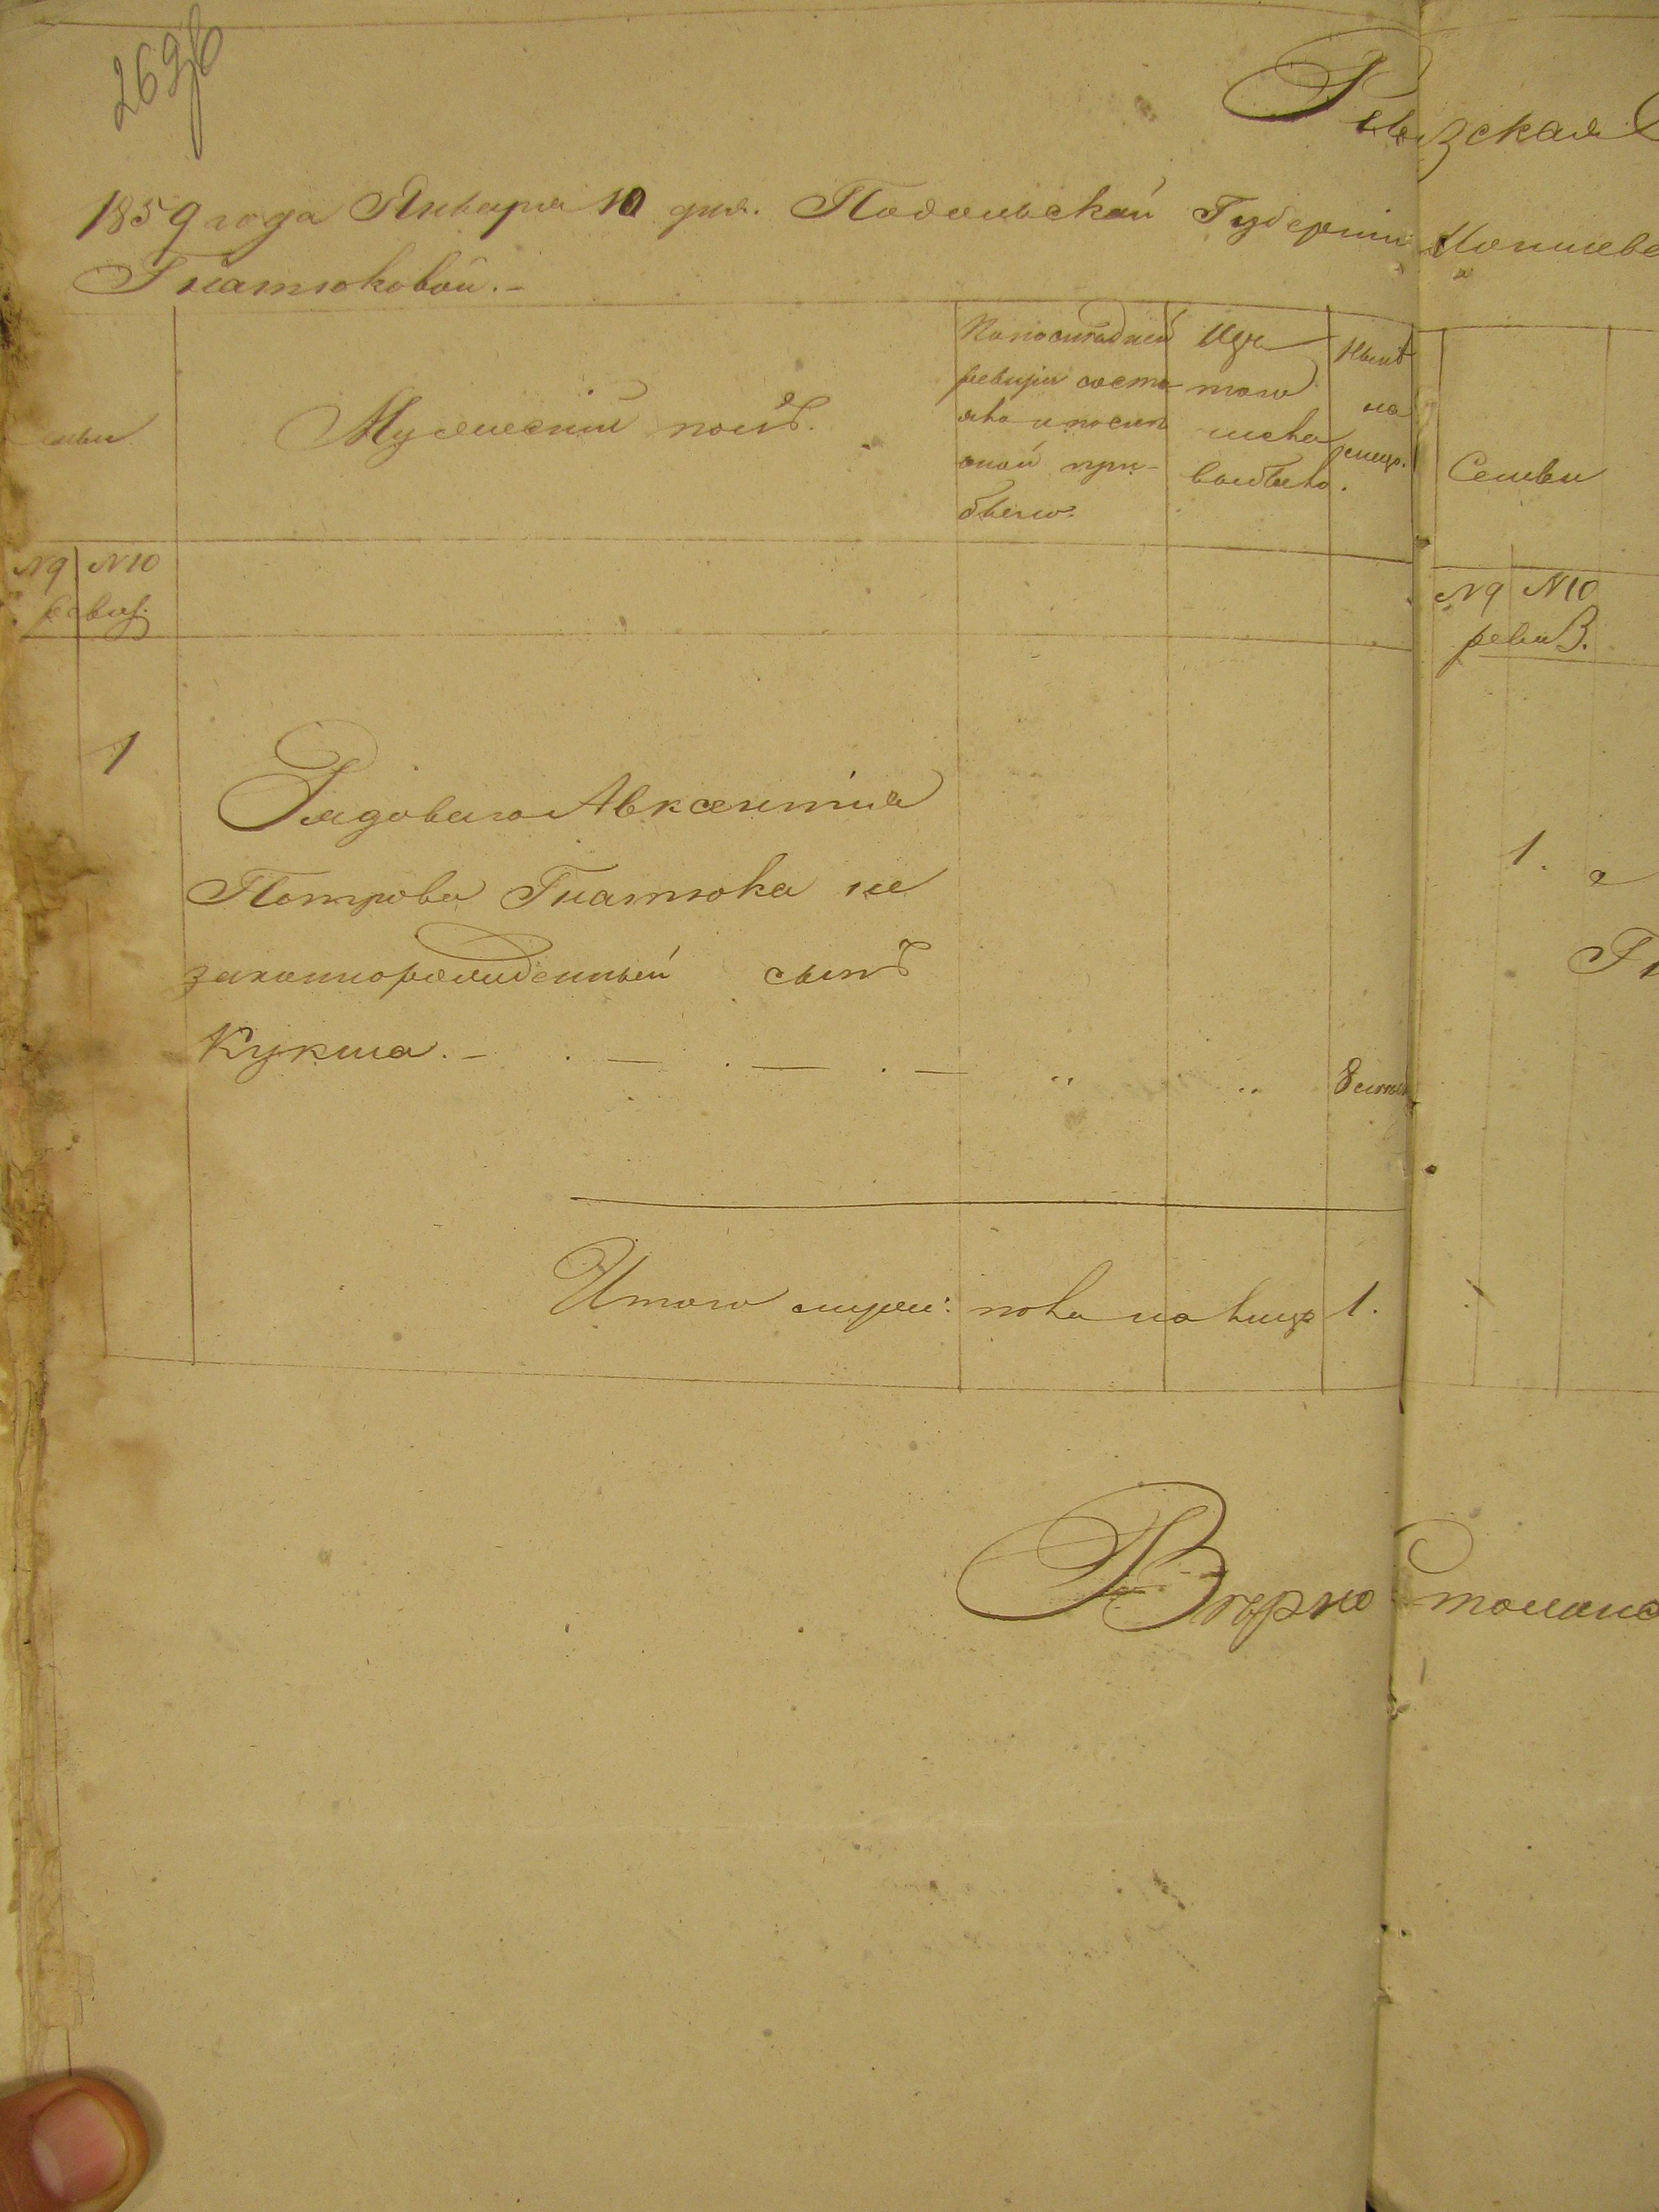 269об
Ревизская
1859 года Января 10 дня. Подольской Губерніи Могилевс
Гнатюковой.-
Семьи
Мужескій полъ.
По последней
ревизіи состо-
яло и после
оной при-
было.
Изъ
того
числа
выбыло.
Ныне
на
лицо.
Семьи
N9 N10
ревиз.
N9 N10
ревиз.
1
Рядоваго Авксентія
Петрова Гнатюка не
законнорожденный сынъ
Кукша. - . — . — . — „ „ 8 лет
1.
Гн
Итого мужес: пола на лицо 1.
Верно